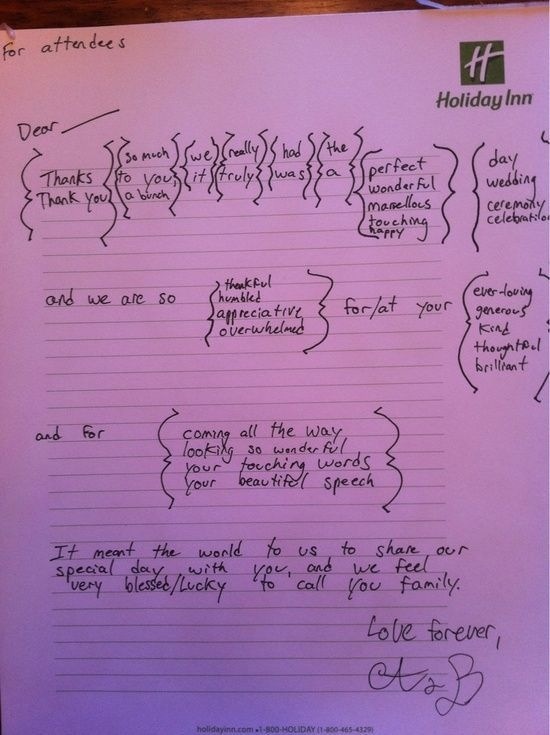 For attendees
H
Holiday Inn
Dear
Thanks { so much { we { really { had { the { perfect { day
Thank you to you, it truly was a wonderful wedding
a bunch marvellous ceremony
touching celebration
happy
and we are so { thankful } for/at your { ever-loving
humbled generous
appreciative kind
overwhelmed thoughtful
brilliant
and for { coming all the way }
looking so wonderful
your touching words
your beautiful speech
It meant the world to us to share our
special day with you, and we feel
very blessed/Lucky to call you family.
Love forever,
A & B
holidayinn.com • 1-800-HOLIDAY (1-800-465-4329)